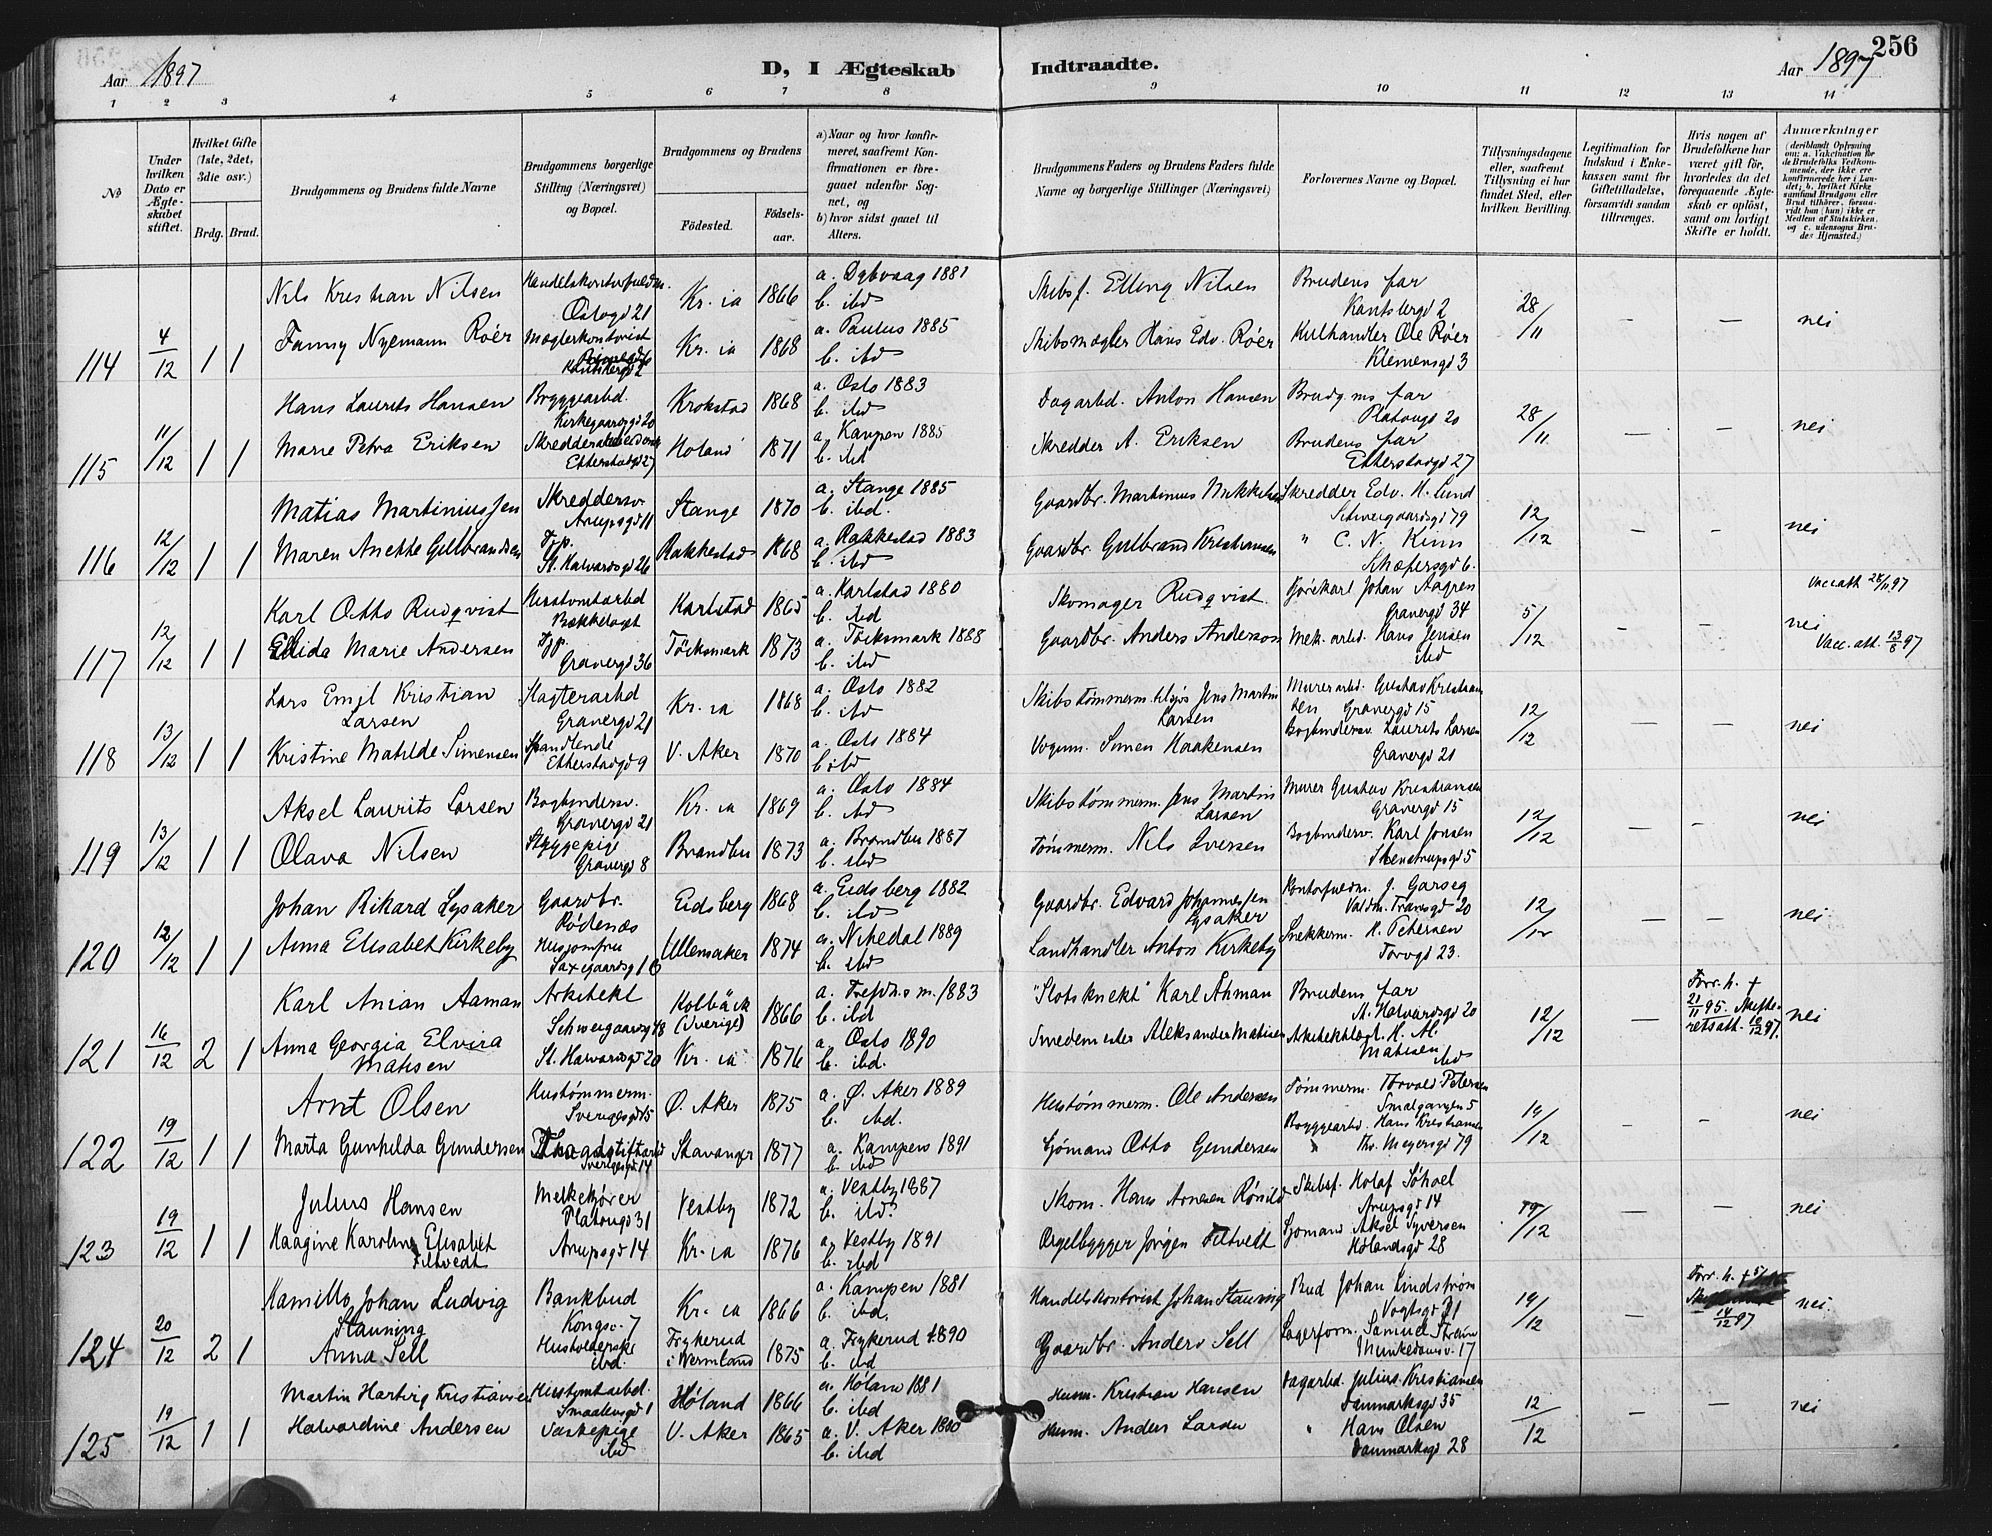 Aar 1897
D, I Ægteskab
Indtraadte.
Aar 1897
256
1 2 3 4 5 6 7 8 9 10 11 12 13 14
No
Under hvilken Dato er Ægteskabet stiftet.
Hvilket Gifte (1ste, 2det, 3die osv.)
Brdg. Brud.
Brudgommens og Brudens fulde Navne
Brudgommens borgerlige Stilling (Næringsvei) og Bopæl.
Brudgommens og Brudens
Fødested.
Fødselsaar.
a) Naar og hvor konfirmeret, saafremt Konfirmationen er foregaaet udenfor Sognet, og
b) hvor sidst gaaet til Alters.
Brudgommens Faders og Brudens Faders fulde Navne og borgerlige Stillinger (Næringsvei)
Forlovernes Navne og Bopæl.
Tillysningsdagene eller, saafremt Tillysning ei har fundet Sted, efter hvilken Bevilling.
Legitimation for Indskud i Enkekassen samt for Giftetilladelse, forsaavidt saadan tiltrænges.
Hvis nogen af Brudefolkene har været gift før, hvorledes da det foregaaende Ægteskab er opløst, samt om lovligt Skifte er holdt.
Anmærkninger (deriblandt Oplysning om: a. Vakcination for de Brudefolks Vedkommende, der ikke ere konfirmerede her i Landet; b. hvilket Kirkesamfund Brudgom eller Brud tilhører, forsaavidt han (hun) ikke er Medlem af Statskirken, og c. udensogns Brudes Hjemsted.)
Nils Kristian Nilsen Oslogd 21 Kr. ia 1866 a. Dybvaag 1881 b. ibd Skibsf. Elling Nilsen Brudens far Kantsbergd 2
114 4/12 1 1 Fanny Nyemann Röer Mæglerkontorist Kr. ia 1868 a. Paulus 1885 b. ibd Skibsmægler Hans Edv. Röer Kulhandler Ole Röer Klemensgd 3 28/11 — — nei
Hans Laurits Hansen Bryggearbd. Kirkegaardsgd 20 Krokstad 1868 a. Oslo 1883 b. ibd Dagarbd. Anton Hansen Brudg.ms far Platougd 20
115 11/12 1 1 Marie Petra Eriksen Etterstadgd 27 Høland 1871 a. Kampen 1885 b. ibd Skredder A. Eriksen Brudens far Etterstadgd 27 28/11 — — nei
Matias Martiniussen Skreddersv. Arupsgd 11 Stange 1870 a. Stange 1885 b. ibd. Gaardbr. Martinius Mikkelsen Skredder Edv. H. Lund Schweigaardsgd 79
116 12/12 1 1 Maren Anette Gulbrandsen Tjp. St. Halvardsgd 26 Rakkestad 1868 a. Rakkestad 1883 b. ibd Gaardbr. Gulbrand Kristiansen " C. N. Kinn Schæfersgd 6. 12/12 — — nei
Karl Otto Rudqvist Hustomtarbd Bækkelaget Karlstad 1865 a. Karlstad 1880 b. ibd Skomager Rudqvist Kjørekarl Johan Aagren Gravergd 34 Vacc.att 28/11 97
117 12/12 1 1 Elida Marie Andersen Tjp. Gravergd 36 Töcksmark 1873 a. Töcksmark 1888 b. ibd Gaardbr. Anders Anderson Mek. arbd. Hans Jensen ibd 5/12 — — nei Vacc. att. 13/8 97
Lars Emil Kristian Larsen Slagterarbd Gravergd 21 Kr. ia 1868 a. Oslo 1882 b. ibd Skibstømmerm. tilsjøs Jens Martin Larsen Murerarbd. Gustav Kristiansen Gravergd 15
118 13/12 1 1 Kristine Matilde Simensen Etterstadgd 9 V. Aker 1870 a. Oslo 1884 b. ibd Vognm. Simen Haakensen Bogbindersv. Laurits Larsen Gravergd 21 12/12 — — nei
Aksel Laurits Larsen Bogbindersv. Gravergd 21 Kr. ia 1869 a. Oslo 1884 b. ibd Skibstømmerm. Jens Martin Larsen Murer Gustav Kristiansen Gravergd 15
119 13/12 1 1 Olava Nilsen Gravergd 8 Brandbu 1873 a. Brandbu 1887 b. ibd Tømmerm. Nils Iversen Bogbindersv. Karl Jonsen Stenstrupsgd 5 12/12 — — nei
Johan Rikard Lysaker Gaardbr. Rødenæs Eidsberg 1868 a. Eidsberg 1882 b. ibd Gaardbr. Edvard Johannessen Lysaker Kontorfuldm. J. Garseg Valdm. Tranesgd 20
120 12/12 1 1 Anna Elisabet Kirkeby Husjomfru Saxegaardsg 16 Ullensaker 1874 a. Nitedal 1889 b. ibd Landhandler Anton Kirkeby Snekkerm. K. Petersen Torvgd 23. 12/12 — — nei
Karl Anian Aaman Arkitekt Schweigaardsgd 48 Kolbäck (Sverige) 1866 b. ibd "Slotsknekt" Karl Åhman Brudens far St. Halvardsgd 20 Forr. h. + 21/11 95. Skifteretsatt. 10/12 97.
121 16/12 2 1 Anna Georgia Elvira Matisen St. Halvardsgd 20 Kr. ia 1876 a. Oslo 1890 b. ibd. Smedemester Aleksander Matisen Matisen ibd 12/12 — nei
Arnt Olsen Hustømmerm. Sverigesgd 15 Ø. Aker 1875 a. Ø. Aker 1889 b. ibd. Hustømmerm. Ole Andersen Tømmerm. Torvald Petersen Smalgangen 5
122 19/12 1 1 Marta Gunhilda Gundersen Sverigesgd 14 Stavanger 1877 a. Kampen 1891 b. ibd Sjømand Otto Gundersen Bryggearbd. Hans Kristiansen Thv. Meyersgd 79 19/12 — — nei
Julius Hansen Melkekjører Platougd 31 Vestby 1872 a. Vestby 1887 b. ibd? Skom. Hans Arnesen Skibsf. Arupsgd 14
123 19/12 1 1 Haagine Karoline Elisabet Filtvedt Arupsgd 14 Kr. ia 1876 a. Vestby 1891 b. ibd Orgelbygger Jørgen Filtvedt Sjømand Aksel Syversen Hølandsgd 28 19/12 — — nei
Kamillo Johan Ludvig Stauning Bankbud Kongsv. 7 Kr. ia 1866 a. Kampen 1881 b. ibd. Handelskontorist Johan Stauning Bud Johan Lindstrøm Vogtsgd 21 Forr. h. + 14/12 97
124 20/12 2 1 Anna Sell Husholderske ibd. Frykerud i Wermland 1875 a. Frykerud 1890 b. ibd Gaardbr. Anders Sell Lagerform. Samuel Munkedamsv. 17 19/12 — nei
Martin Hartvig Kristiansen Hustomtarbd. Smaalensgd 1 Høland 1866 a. Høland 1881 b. ibd Husm. Kristian Hansen Dagarbd. Julius Kristiansen Danmarksgd 35
125 19/12 1 1 Halvardine Andersen Vaskepige ibd V. Aker 1865 a. V. Aker 1880 b. ibd Husm. Anders Larsen " Hans Olsen Danmarksgd 28 12/12 — — nei